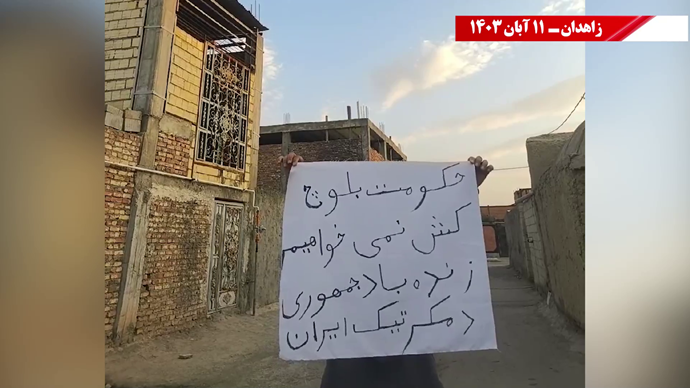 زاهدان ـ ۱۱ آبان ۱۴۰۳
حکومت بلوچ
کش نمی خواهیم
زنده باد جمهوری
دمکرتیک ایران